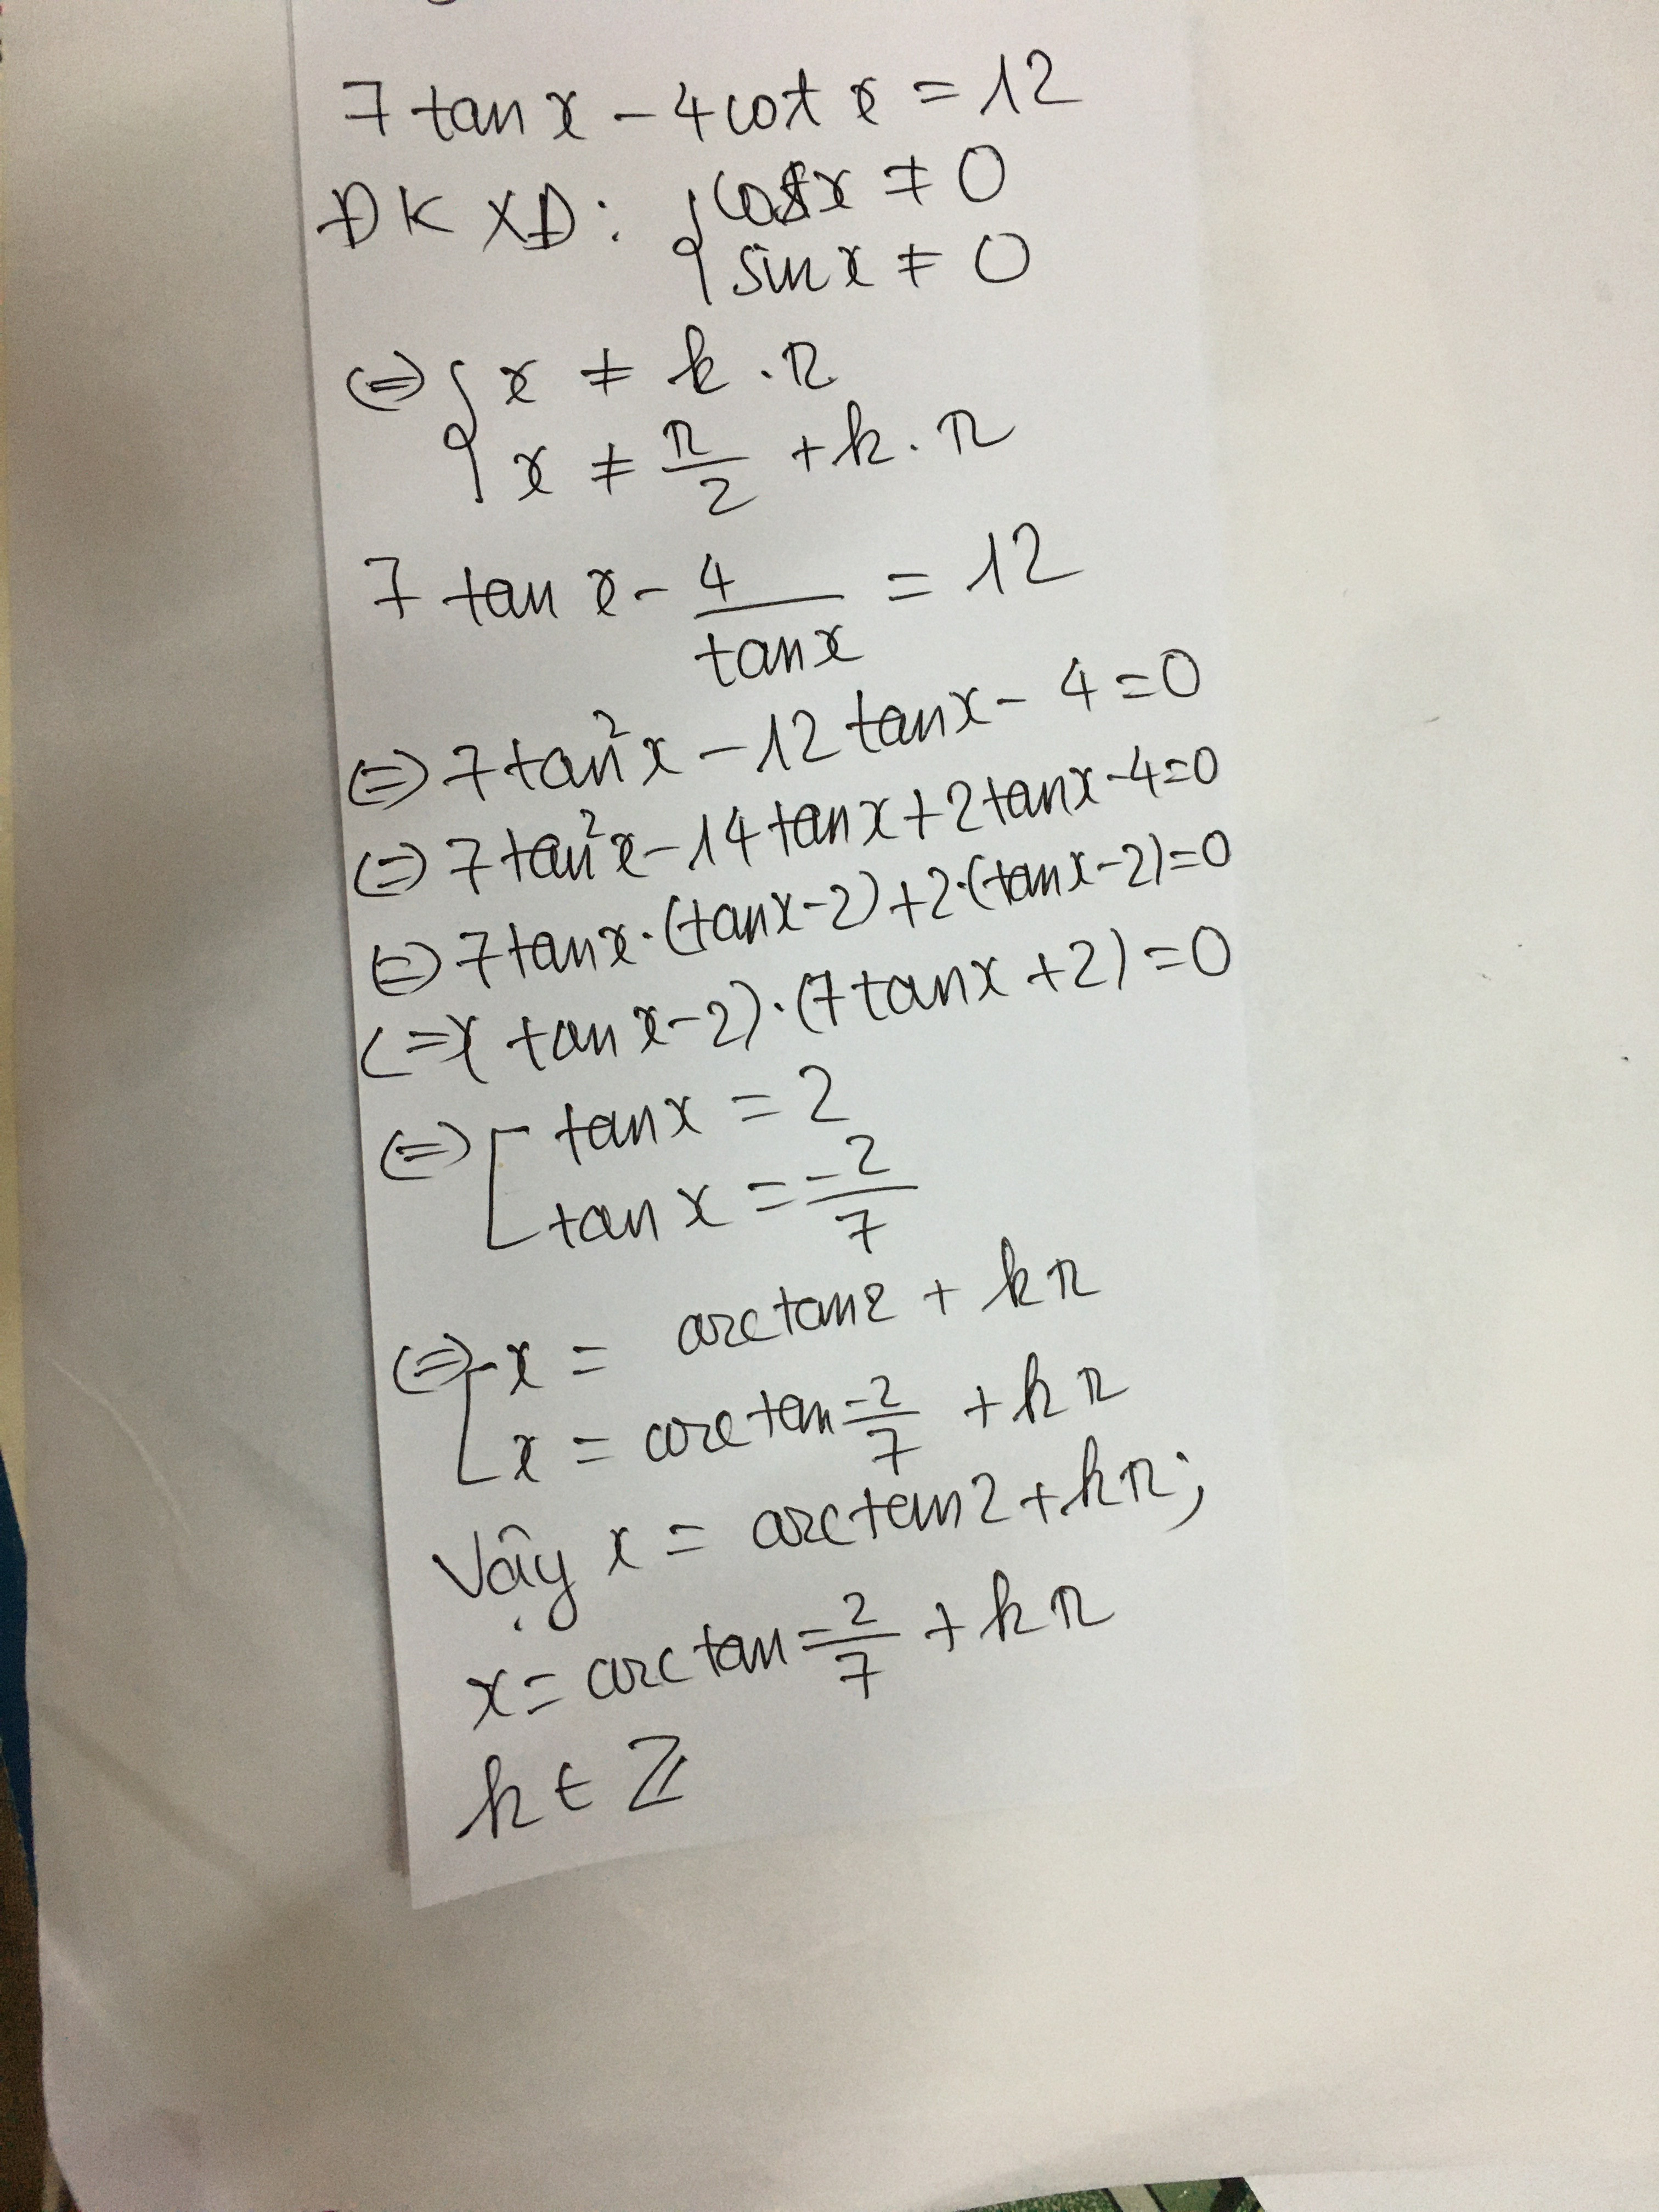 7 tan x - 4 cot x = 12
ĐKXĐ: { cos x ≠ 0
sin x ≠ 0
⇔ { x ≠ k . π
x ≠ π/2 + k . π
7 tan x - 4/tan x = 12
⇔ 7 tan²x - 12 tan x - 4 = 0
⇔ 7 tan²x - 14 tan x + 2 tan x - 4 = 0
⇔ 7 tan x . (tan x - 2) + 2 . (tan x - 2) = 0
⇔ (tan x - 2) . (7 tan x + 2) = 0
⇔ [ tan x = 2
tan x = -2/7
⇔ [ x = arctan 2 + kπ
x = arctan -2/7 + kπ
Vậy x = arctan 2 + kπ;
x = arctan -2/7 + kπ
k ∈ ℤ